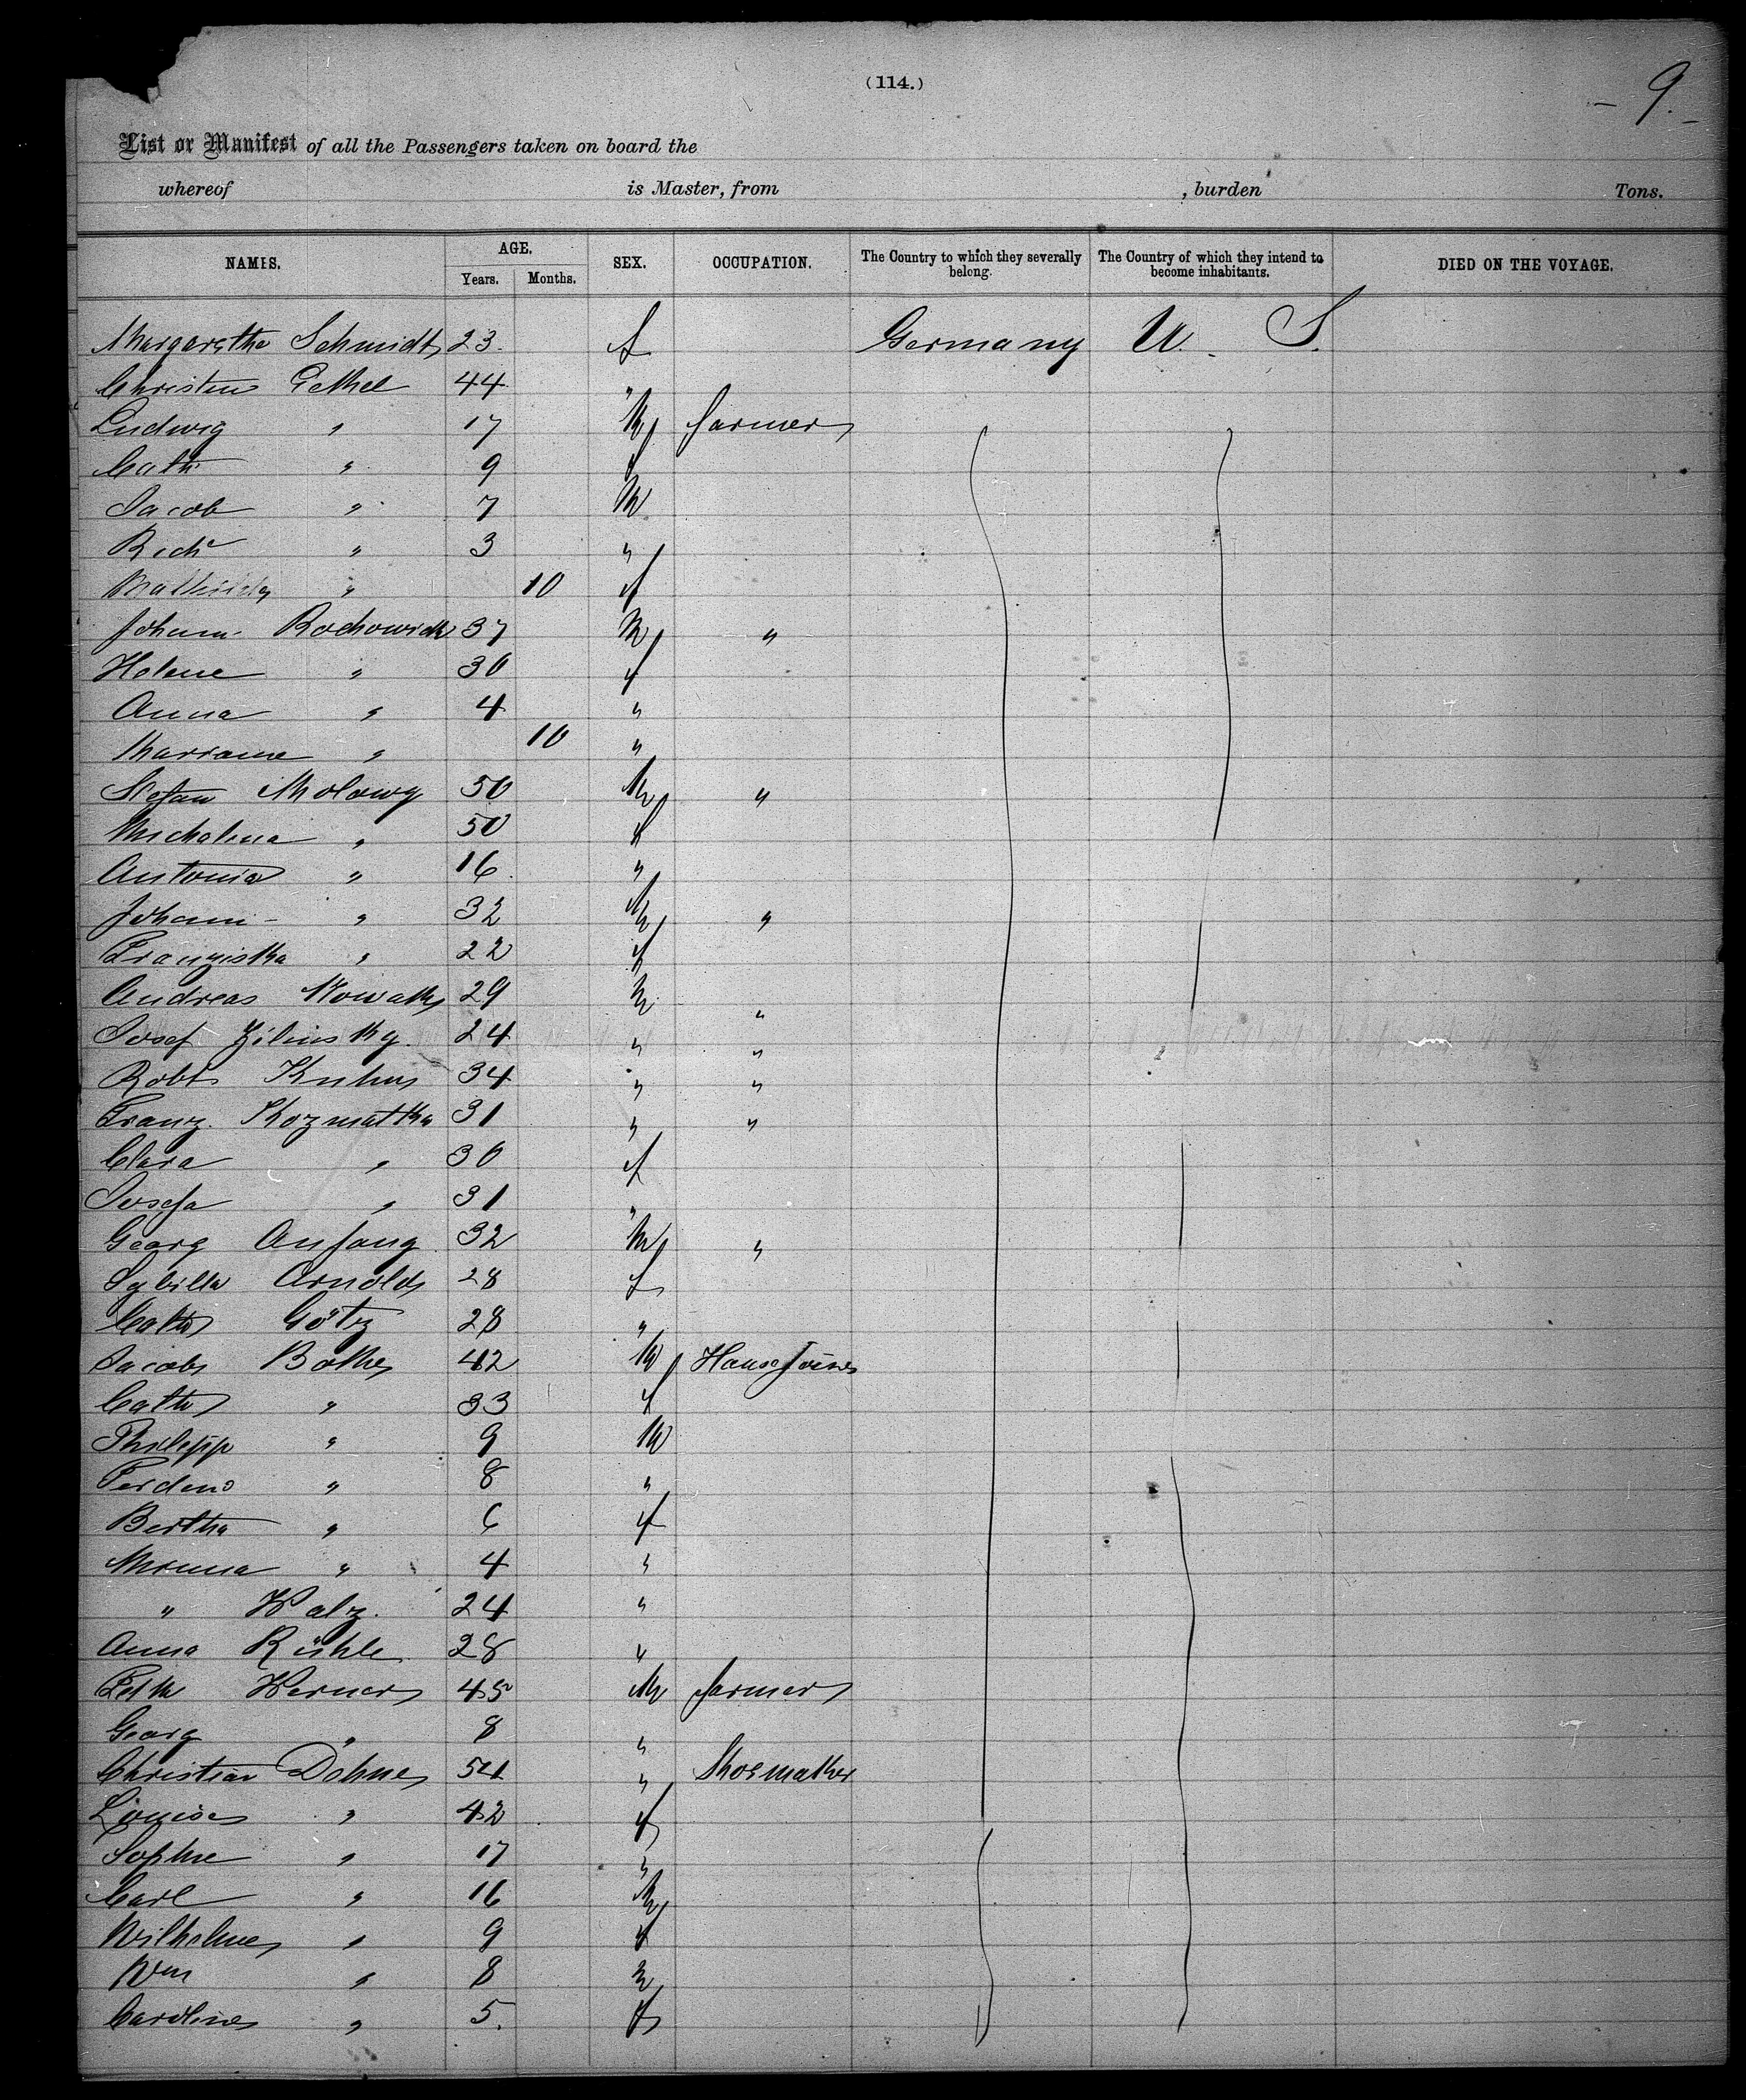 (114.)
- 9. -
List or Manifest of all the Passengers taken on board the
whereof is Master, from , burden Tons.
NAMES. AGE. Years. Months. SEX. OCCUPATION. The Country to which they severally belong. The Country of which they intend to become inhabitants. DIED ON THE VOYAGE.
Margarethe Schmidt 23. f Germany U. S.
Christine 44 "
Ludwig " 17 M farmer
Cath " 9 f
Jacob " 7 M
Richd " 3 "
Mathilde " 10 f
Johann Rochowick 37 M "
Helene " 30 f
Anna " 4 "
Marianne " 10 "
Stefan Molowy 50 M "
Michalina " 50 f
Antonia " 16 "
Johann " 32 M "
Franziska " 22 f
Andreas Nowak 29 M "
Josef Zilinsky 24 " "
Robt 34 " "
Franz. Kozmatka 31 " "
Clara " 30 f
Josefa " 31 "
Georg Anfang 32 M "
Sybilla Arnolds 28 f
Cath Götz 28 "
Jacob Bothe 42 M House Joiner
Cath " 33 f
Philipp " 9 M
Ferdend " 8 "
Bertha " 6 f
Minna " 4 "
" Walz. 24 "
Anna Rühle 28 "
Werner 45 M farmer
Georg " 8 "
Christian Dohne 54 " Shoemaker
Louise " 42 f
Sophie " 17 "
Carl " 16 M
Wilhelme " 9 f
Wm " 8 M
Caroline " 5. f